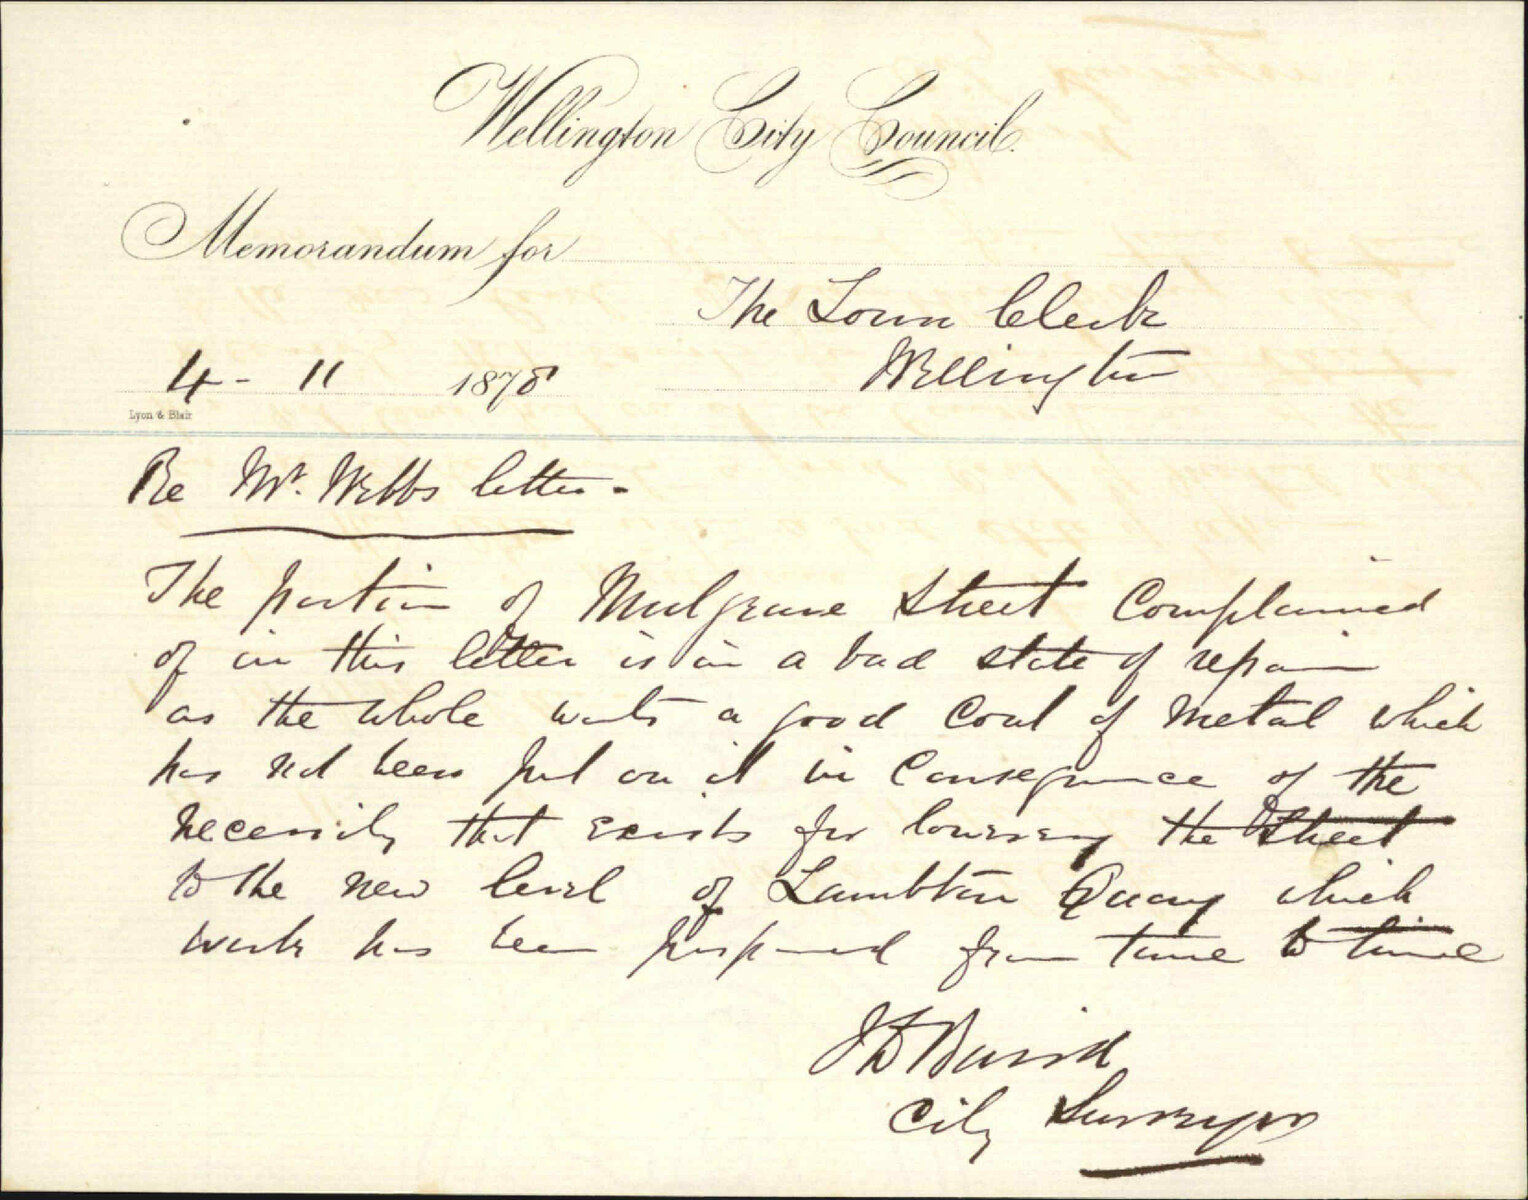 Wellington City Council.
Memorandum for
The Town Clerk
Wellington
4 - 11 1878
Lyon & Blair
Re Mr. Webbs letter -
The portion of Mulgrave Street Complained
of in this letter is in a bad state of repair
as the whole wants a good Coat of Metal which
has not been put on it in Consequence of the
necessity that exists for lowering the Street
to the new level of Lambton Quay which
work has been postponed from time to time
J D Baird
City Surveyor